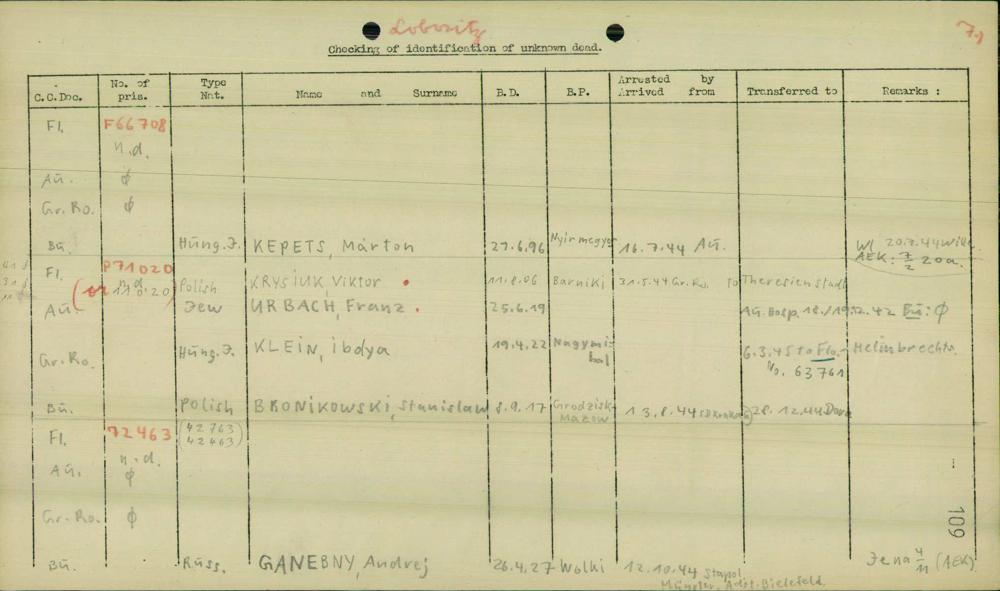 Lobositz 7.)
Checking of identification of unknown dead.
C.C.Doc. No. of pris. Type Nat. Name and Surname B.D. B.P. Arrested by Arrived from Transferred to Remarks :
Fl. F66708
n.d.
Au. ϕ
Gr. Ro. ϕ
Bu. Hung. J. KEPETS, Márton 27.6.96 Nyirmegyes 16.7.44 Au. Wl. 20.7.44 Wille
AEK: 7/2 20a.
Fl. P71020 n.d. Polish KRYSIUK, Viktor 11.8.06 Barniki 31.5.44 Gr. Ro. to Theresienstadt
Au. Jew URBACH, Franz 25.6.19 Au. Hosp. 18./19.12.42 Bu: ϕ
Gr. Ro. Hung. J. KLEIN, ibdya 19.4.22 Nagymihal 6.3.45 to Flo.- Helmbrechts.
No. 63761
Bu. Polish BRONIKOWSKI, Stanislaw 8.9.17 Grodzisk Mazow 13.8.44 28.12.44 Dora
Fl. 72463 (42763
42463)
n.d.
Au. ϕ
Gr. Ro. ϕ
109
Bu. Russ. GANEBNY, Andrej 26.4.27 Wolki 12.10.44 Stapol. Jena 4/11 (AEK)
Münster, Adst. Bielefeld